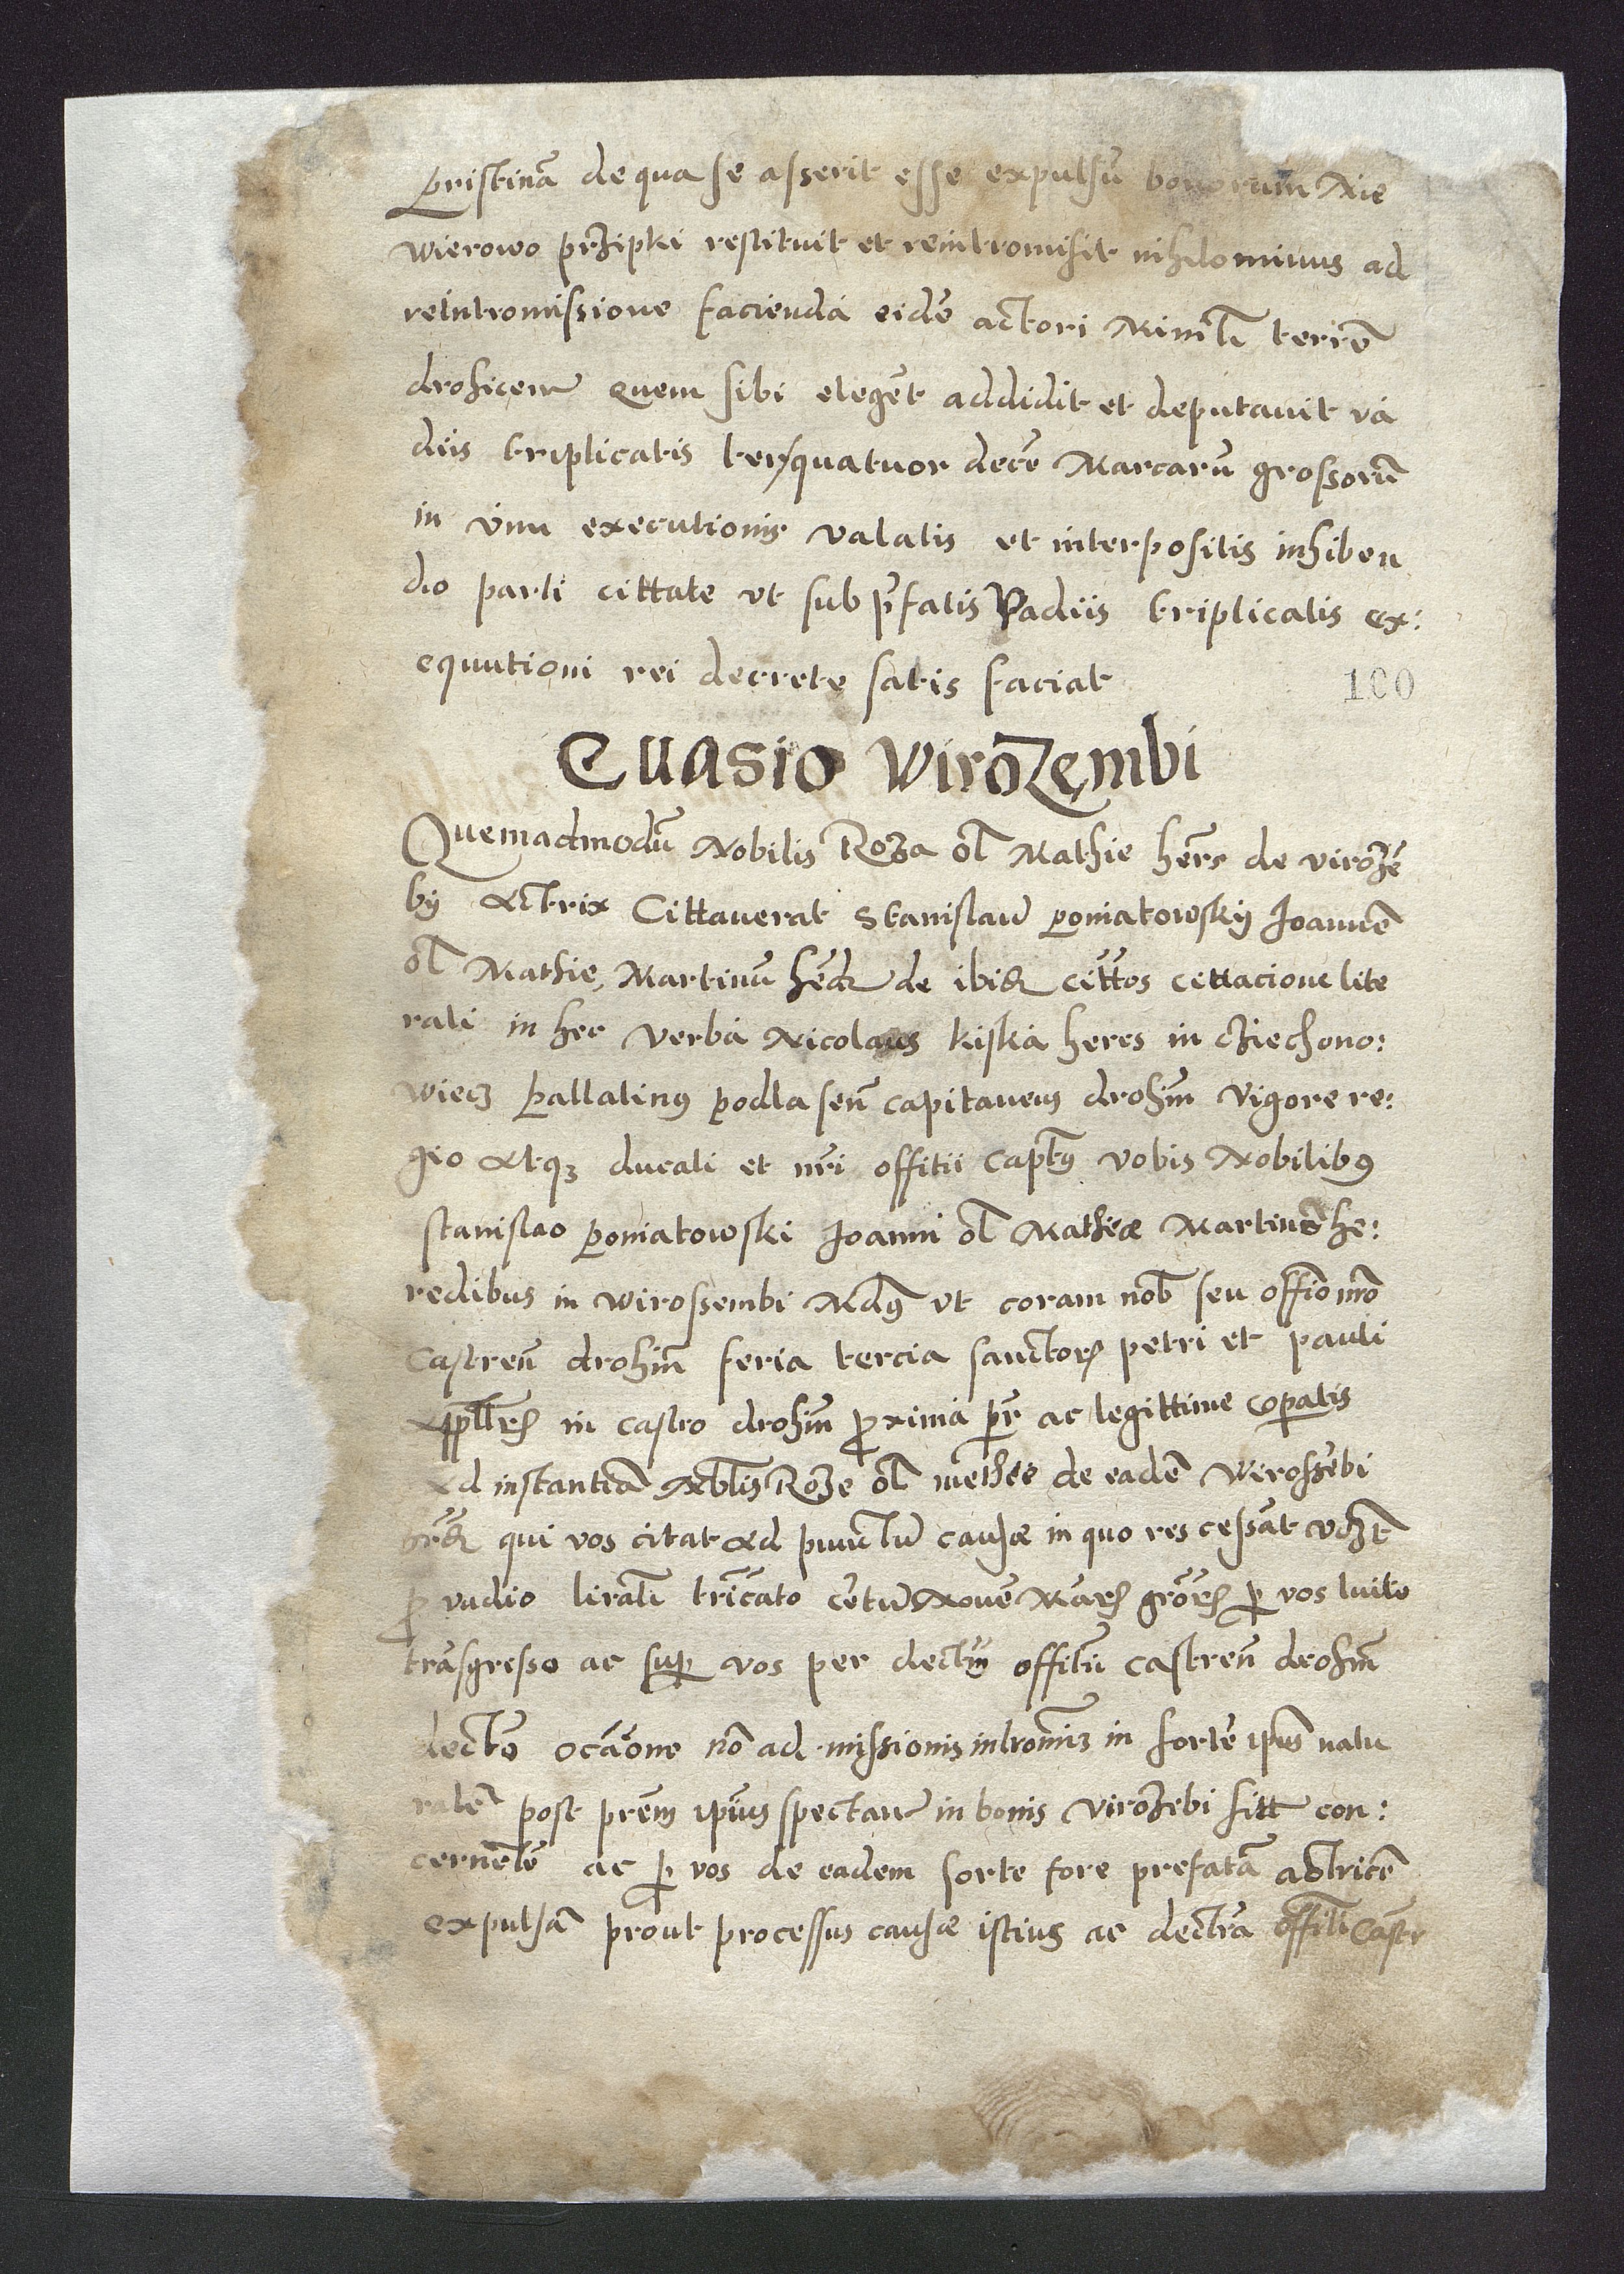 pristinã de qua se asserit esse expulsũ bonorum Nie
wierowo przipki restituit et reintromisit nihilominus ad
reintromissione facienda eidẽ actori Mintli terrẽ
drohicen quem sibi elegẽt addidit et deputavit va
diis triplicatis ter quatuor decẽ Marcarũ grossorũ
in vim executionis valatis et interpositis inhiben
do parti cittate vt sub p̃fatis Vadiis triplicatis ex:
equutioni rei decrete satis faciat
100
Evasio Wirozęmbi
Quemadmodũ Nobilis Roza ol Mathie hers de virozẽ
by Actrix Cittaverat Stanislaũ poniatowskij Joannẽ
ol Mathie, Martinũ hẽd de ibid cittos cittacione lite
rali in hec verba Nicolaus kiska heres in cziechono:
wiecz pallatinus podlasen̄ capitaneus drohim Vigore re:
gio Atq3 ducali et nr̃i offitii Captus vobis Nobilibus
stanislao poniatowski Joanni ol Mathiæ Martino he:
redibus in wirossembi Mdus vt coram nob seu offio nro
Castren̄ drohim feria tercia sanctor petri et pauli
Appllor in castro drohim proxima pr ac legittime cõpatis
Ad instantiã Nblis Roze ol methie de eadẽ wirossẽbi
qui vos citat Ad punctũ causæ in quo res cessat vdzt
pro vadio lirali tric̃ato cẽtũ Novẽ Mar grõr p vos luito
trãsgresso ac sup vos per dectm offitii castren̄ drohim
dectõ ocãone nõ ad missionis intromis in sortẽ ipius natu
ralẽ post prem ipius spectan̄ in bonis virozẽbi sitt con:
cernẽtẽ ac p vos de eadem sorte fore prefatã actricẽ
expulsã prout processus causæ istius ac dectra offitii Castr